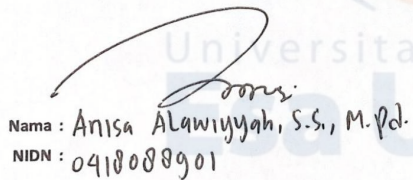 Universita
Esa U
Nama : Anisa Alawiyyah, S.S., M.Pd.
NIDN : 0418088901